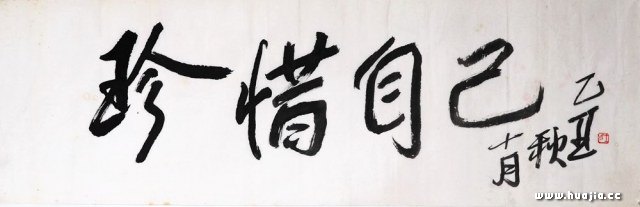 珍惜自己
乙丑
秋
十月
www.huajia.cc